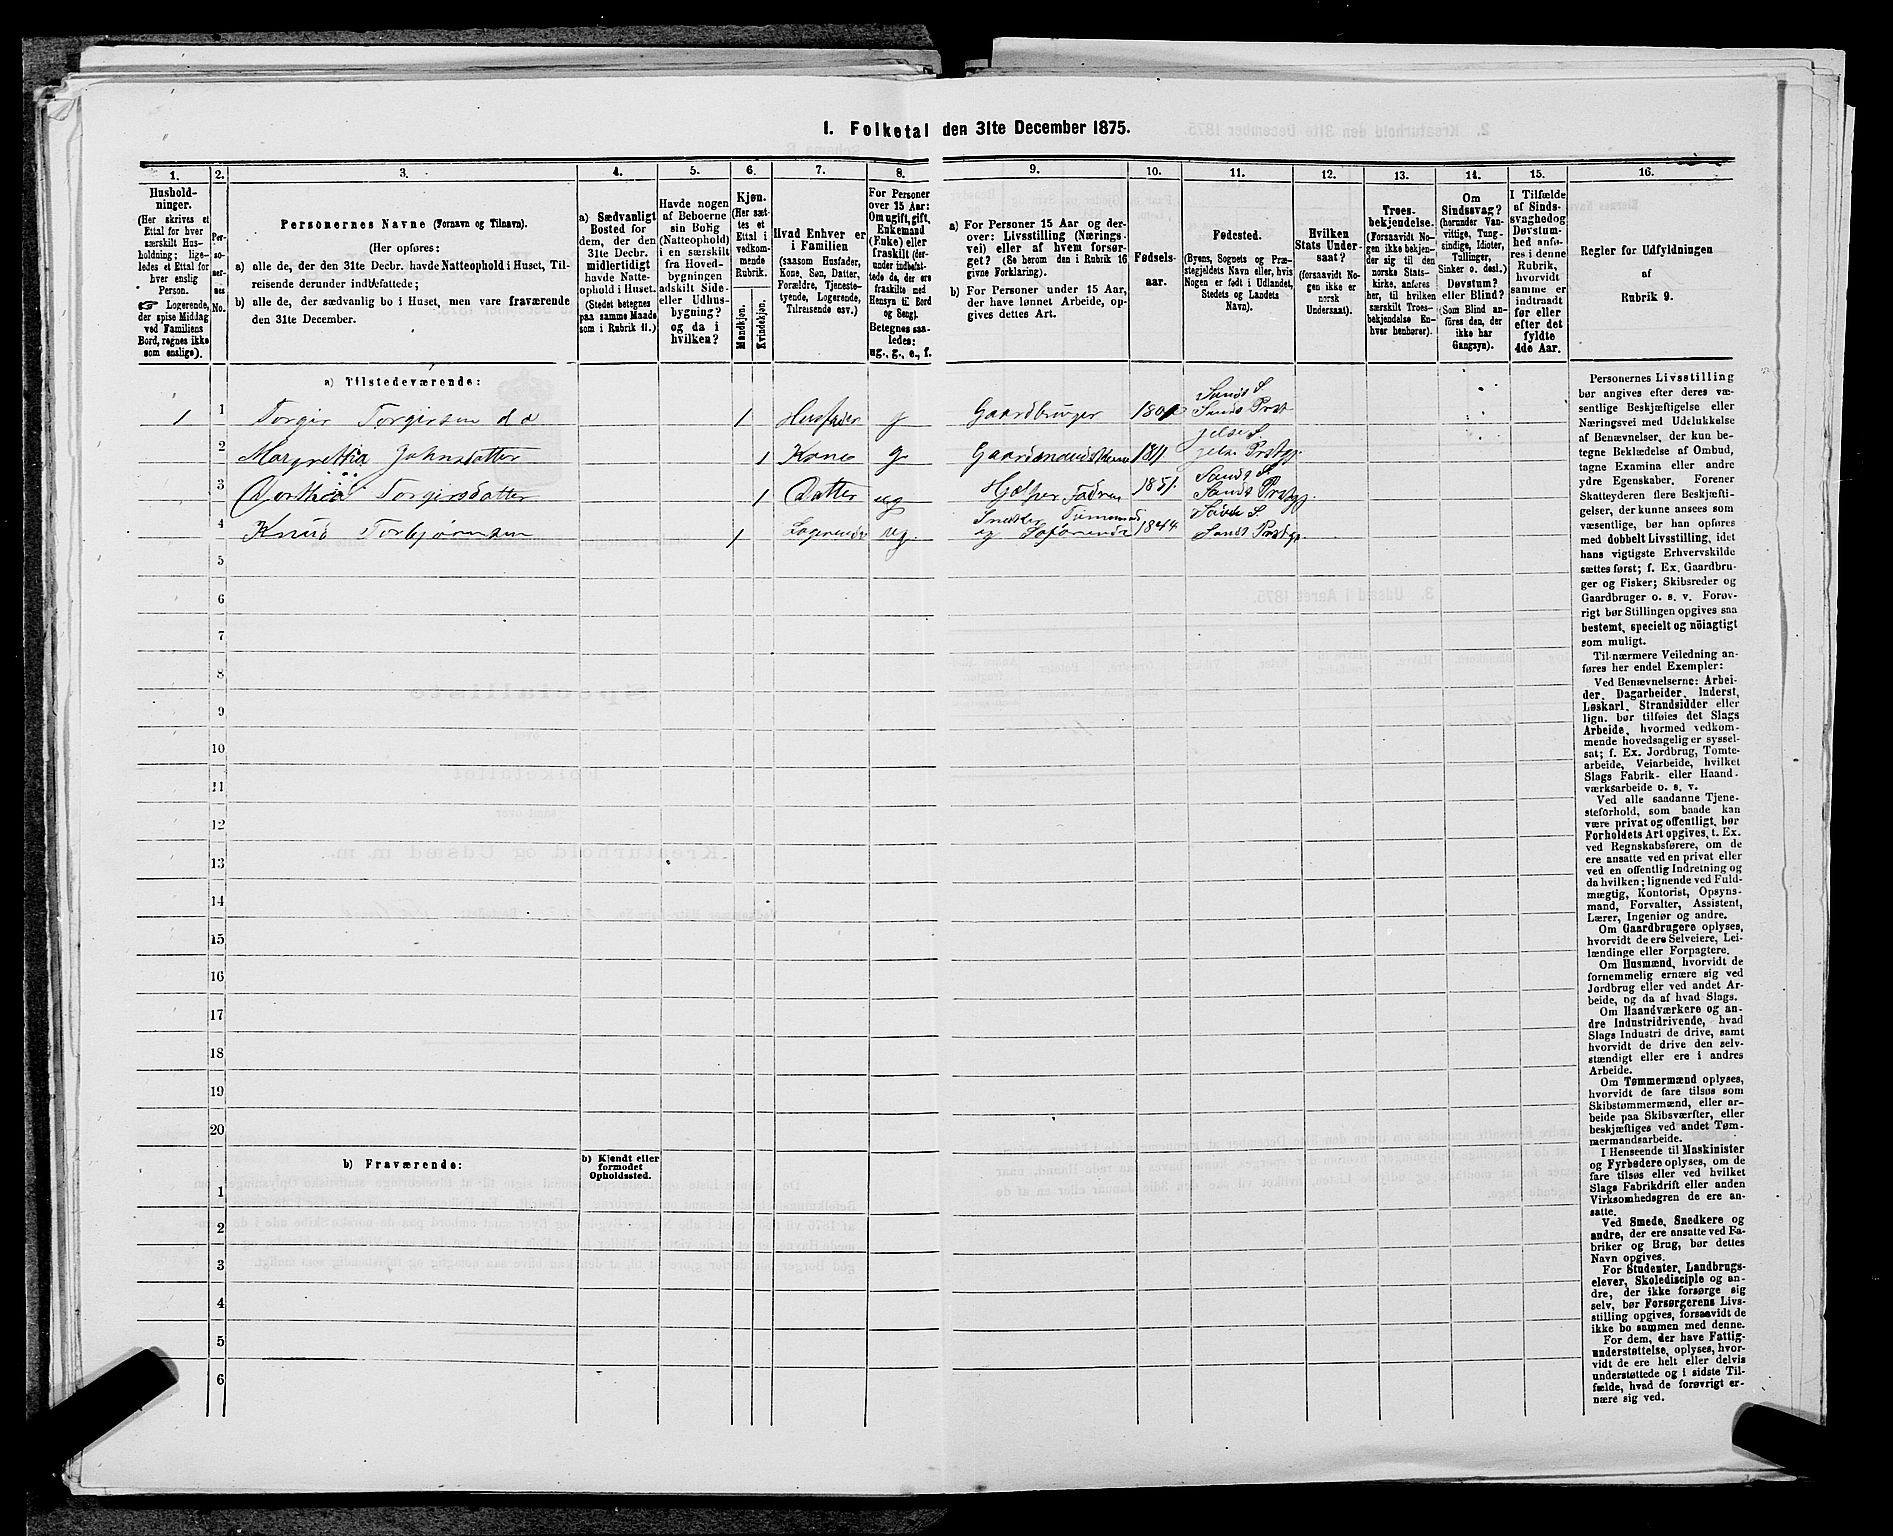 1. Folketal den 31te December 1875.
1.
Hushold-
ninger.
(Her skrives et
Ettal for hver
særskilt Hus-
holdning; lige-
ledes et Ettal for
hver enslig
Person.
☞ Logerende,
der spise Middag
ved Familiens
Bord, regnes ikke
som enslige).
2.
Per-
so-
ner-
nes
No.
3.
Personernes Navne (Fornavn og Tilnavn).
(Her opføres:
a) alle de, der den 31te Decbr. havde Natteophold i Huset, Til-
reisende derunder indbefattede;
b) alle de, der sædvanlig bo i Huset, men vare fraværende
den 31te December.
4.
a) Sædvanligt
Bosted for
dem, der den
31te Decbr.
midlertidigt
havde Natte-
ophold i Huset.
(Stedet betegnes
paa samme Maade
som i Rubrik 11.)
5.
Havde nogen
af Beboerne
sin Bolig
(Natteophold)
i en særskilt
fra Hoved-
bygningen
adskilt Side-
eller Udhus-
bygning?
og da i
hvilken?
6.
Kjøn.
(Her sæt-
tes et
Ettal i
vedkom-
mende
Rubrik.
Mandkjøn.
Kvindekjøn.
7.
Hvad Enhver er
i Familien
(saasom Husfader,
Kone, Søn, Datter,
Forældre, Tjeneste-
tyende, Logerende,
Tilreisende osv.)
8.
For Personer
over 15 Aar:
Om ugift, gift,
Enkemand
(Enke) eller
fraskilt (der-
under indbefat-
tede de, der ere
fraskilte med
Hensyn til Bord
og Seng).
Betegnes saa-
ledes:
ug., g., e., f.
9.
a) For Personer 15 Aar og der-
over: Livsstilling (Nærings-
vei) eller af hvem forsør-
get? (Se herom den i Rubrik 16
givne Forklaring).
b) For Personer under 15 Aar,
der have lønnet Arbeide, op-
gives dettes Art.
10.
Fødsels-
aar.
11.
Fødested.
(Byens, Sognets og Præ-
stegjeldets Navn eller, hvis
Nogen er født i Udlandet,
Stedets og Landets
Navn).
12.
Hvilken
Stats Under-
saat?
(forsaavidt No-
gen ikke er
norsk
Undersaat).
13.
Troes-
bekjendelse.
(Forsaavidt No-
gen ikke bekjen-
der sig til den
norske Stats-
kirke, anføres
her, til hvilken
særskilt Troes-
bekjendelse En-
hver henhører).
14.
Om
Sindssvag?
(herunder Van-
vittige, Tung-
sindige, Idioter,
Tullinger,
Sinker o. desl.)
Døvstum?
eller Blind?
(Som Blind an-
føres den, der
ikke har
Gangsyn).
15.
I Tilfælde
af Sinds-
svaghed og
Døvstum-
hed anfø-
res i denne
Rubrik,
hvorvidt
samme er
indtraadt
før eller
efter det
fyldte
4de Aar.
16.
Regler for Udfyldningen
af
Rubrik 9.
a) Tilstedeværende:
1 1 Torgir Torgirsen d. æ 1 Husfader g Gaardbruger 180 Sands S. Sands Prst
2 Margrettha Johnsdatter 1 Kone g Gaardmands 1811 Jelse S. Jelse Prstgj.
3 Dorthea Torgirsdatter 1 Datter ug Hjælper Fadren 1851. Sands S. Sands Prstgj.
4 Knud Torbjørnsen 1 Logerende ug. Snedker Tømmermand og 1844 Sands S. Sands Prstgj.
5
6
7
8
9
10
11
12
13
14
15
16
17
18
19
20
b) Fraværende:
b) Kjendt eller
formodet
Opholdssted.
1
2
3
4
5
6
Personernes Livsstilling
bør angives efter deres væ-
sentlige Beskjæftigelse eller
Næringsvei med Udelukkelse
af Benævnelser, der kun be-
tegne Beklædelse af Ombud,
tagne Examina eller andre
ydre Egenskaber. Forener
Skatteyderen flere Beskjæfti-
gelser, der kunne ansees som
væsentlige, bør han opføres
med dobbelt Livsstilling, idet
hans vigtigste Erhvervskilde
sættes først; f. Ex. Gaardbru-
ger og Fisker; Skibsreder og
Gaardbruger o. s. v. Forøv-
rigt bør Stillingen opgives saa
bestemt, specielt og nöiagtigt
som muligt.
Til nærmere Veiledning an-
føres her endel Exempler:
Ved Benævnelserne: Arbei-
der, Dagarbeider, Inderst,
Løskarl, Strandsidder eller
lign. bør tilføies det Slags
Arbeide, hvormed vedkom-
mende hovedsagelig er syssel-
sat; f. Ex. Jordbrug, Tomte-
arbeide, Veiarbeide, hvilket
Slags Fabrik- eller Haand-
værksarbeide o. s. v.
Ved alle saadanne Tjene-
steforhold, som baade kan
være privat og offentligt, bør
Forholdets Art opgives, t. Ex.
ved Regnskabsførere, om de
ere ansatte ved en privat eller
ved en offentlig Indretning og
da hvilken; lignende ved Fuld-
mægtig, Kontorist, Opsyns-
mand, Forvalter, Assistent,
Lærer, Ingeniør og andre.
Om Gaardbrugere oplyses,
hvorvidt de ere Selveiere, Lei-
lændinge eller Forpagtere.
Om Husmænd, hvorvidt de
fornemmelig ernære sig ved
Jordbrug eller ved andet Ar-
beide, og da af hvad Slags.
Om Haandværkere og an-
dre Industridrivende, hvad
Slags Industri de drive, samt
hvorvidt de drive den selv-
stændigt eller ere i andres
Arbeide.
Om Tømmermænd oplyses,
hvorvidt de fare tilsøs som
Skibstømmermænd, eller ar-
beide paa Skibsværfter, eller
beskjæftiges ved andet Tøm-
mermandsarbeide.
I Henseende til Maskinister
og Fyrbødere oplyses, om de
fare tilsøs eller ved hvilket
Slags Fabrikdrift eller anden
Virksomhedsgren de ere an-
satte.
Ved Smede, Snedkere og
andre, der ere ansatte ved Fa-
briker og Brug, bør dettes
Navn opgives.
For Studenter, Landbrugs-
elever, Skoledisciple og an-
dre, der ikke forsørge sig
selv, bør Forsørgerens Livs-
stilling opgives, forsaavidt de
ikke bo sammen med denne.
For dem, der have Fattig-
understøttelse, oplyses, hvor-
vidt de ere helt eller delvis
understøttede og i sidste Til-
fælde, hvad de forøvrigt er-
nære sig ved.